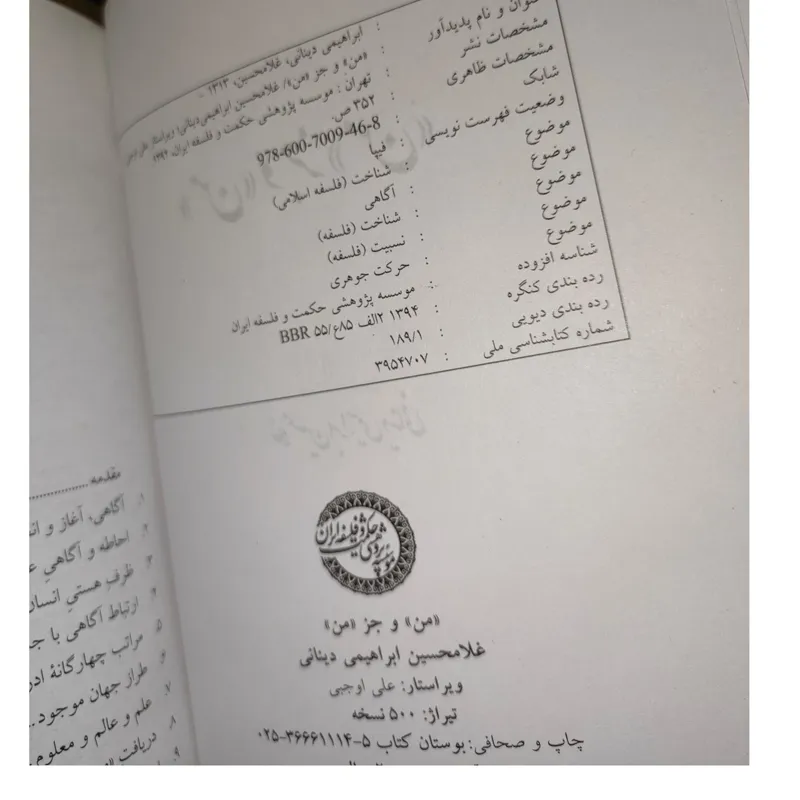 عنوان و نام پدیدآور
مشخصات نشر
مشخصات ظاهری
شابک
وضعیت فهرست نویسی
موضوع
موضوع
موضوع
موضوع
موضوع
شناسه افزوده
رده بندی کنگره
رده بندی دیویی
شماره کتابشناسی ملی
: ابراهیمی دینانی، غلامحسین، ۱۳۱۳ -
: «من» و جز «من»/ غلامحسین ابراهیمی‌دینانی؛ ویراستار علی
: تهران : موسسه پژوهشی حکمت و فلسفه ایران، ۱۳۹۴
: ۳۵۲ ص.
: 978-600-7009-46-8
: فیپا
: شناخت (فلسفه اسلامی)
: آگاهی
: شناخت (فلسفه)
: نسبیت (فلسفه)
: حرکت جوهری
: موسسه پژوهشی حکمت و فلسفه ایران
: ۱۳۹۴ ۲الف ۸۵ع/BBR ۵۵
: ۱۸۹/۱
: ۳۹۵۴۷۰۷
مؤسسه پژوهشی حکمت و فلسفه ایران
«من» و جز «من»
غلامحسین ابراهیمی دینانی
ویراستار: علی اوجبی
تیراژ: ۵۰۰ نسخه
چاپ و صحافی: بوستان کتاب ۵-۳۶۶۶۱۱۱۴-۰۲۵
مقدمه
۱. آگاهی، آغاز و
۲. احاطه و آگاهیِ
۳. ظرفِ هستیِ انسان
۴. ارتباط آگاهی با
۵. مراتب چهارگانۀ
۶. طراز جهان موجود
۷. علم و عالم و معلوم
۸. دریافت
۹.